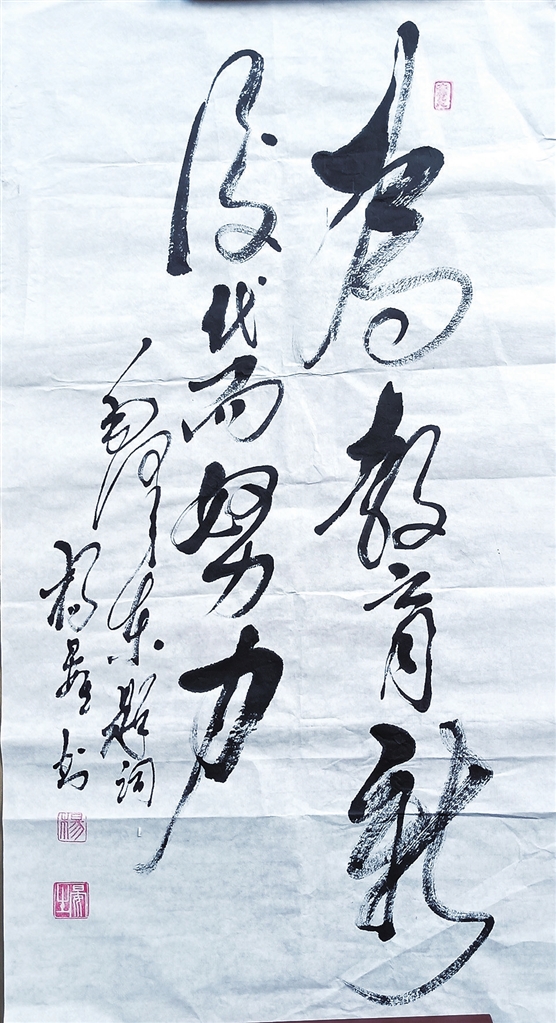 为教育新
后代而努力
毛泽东题词
杨 书